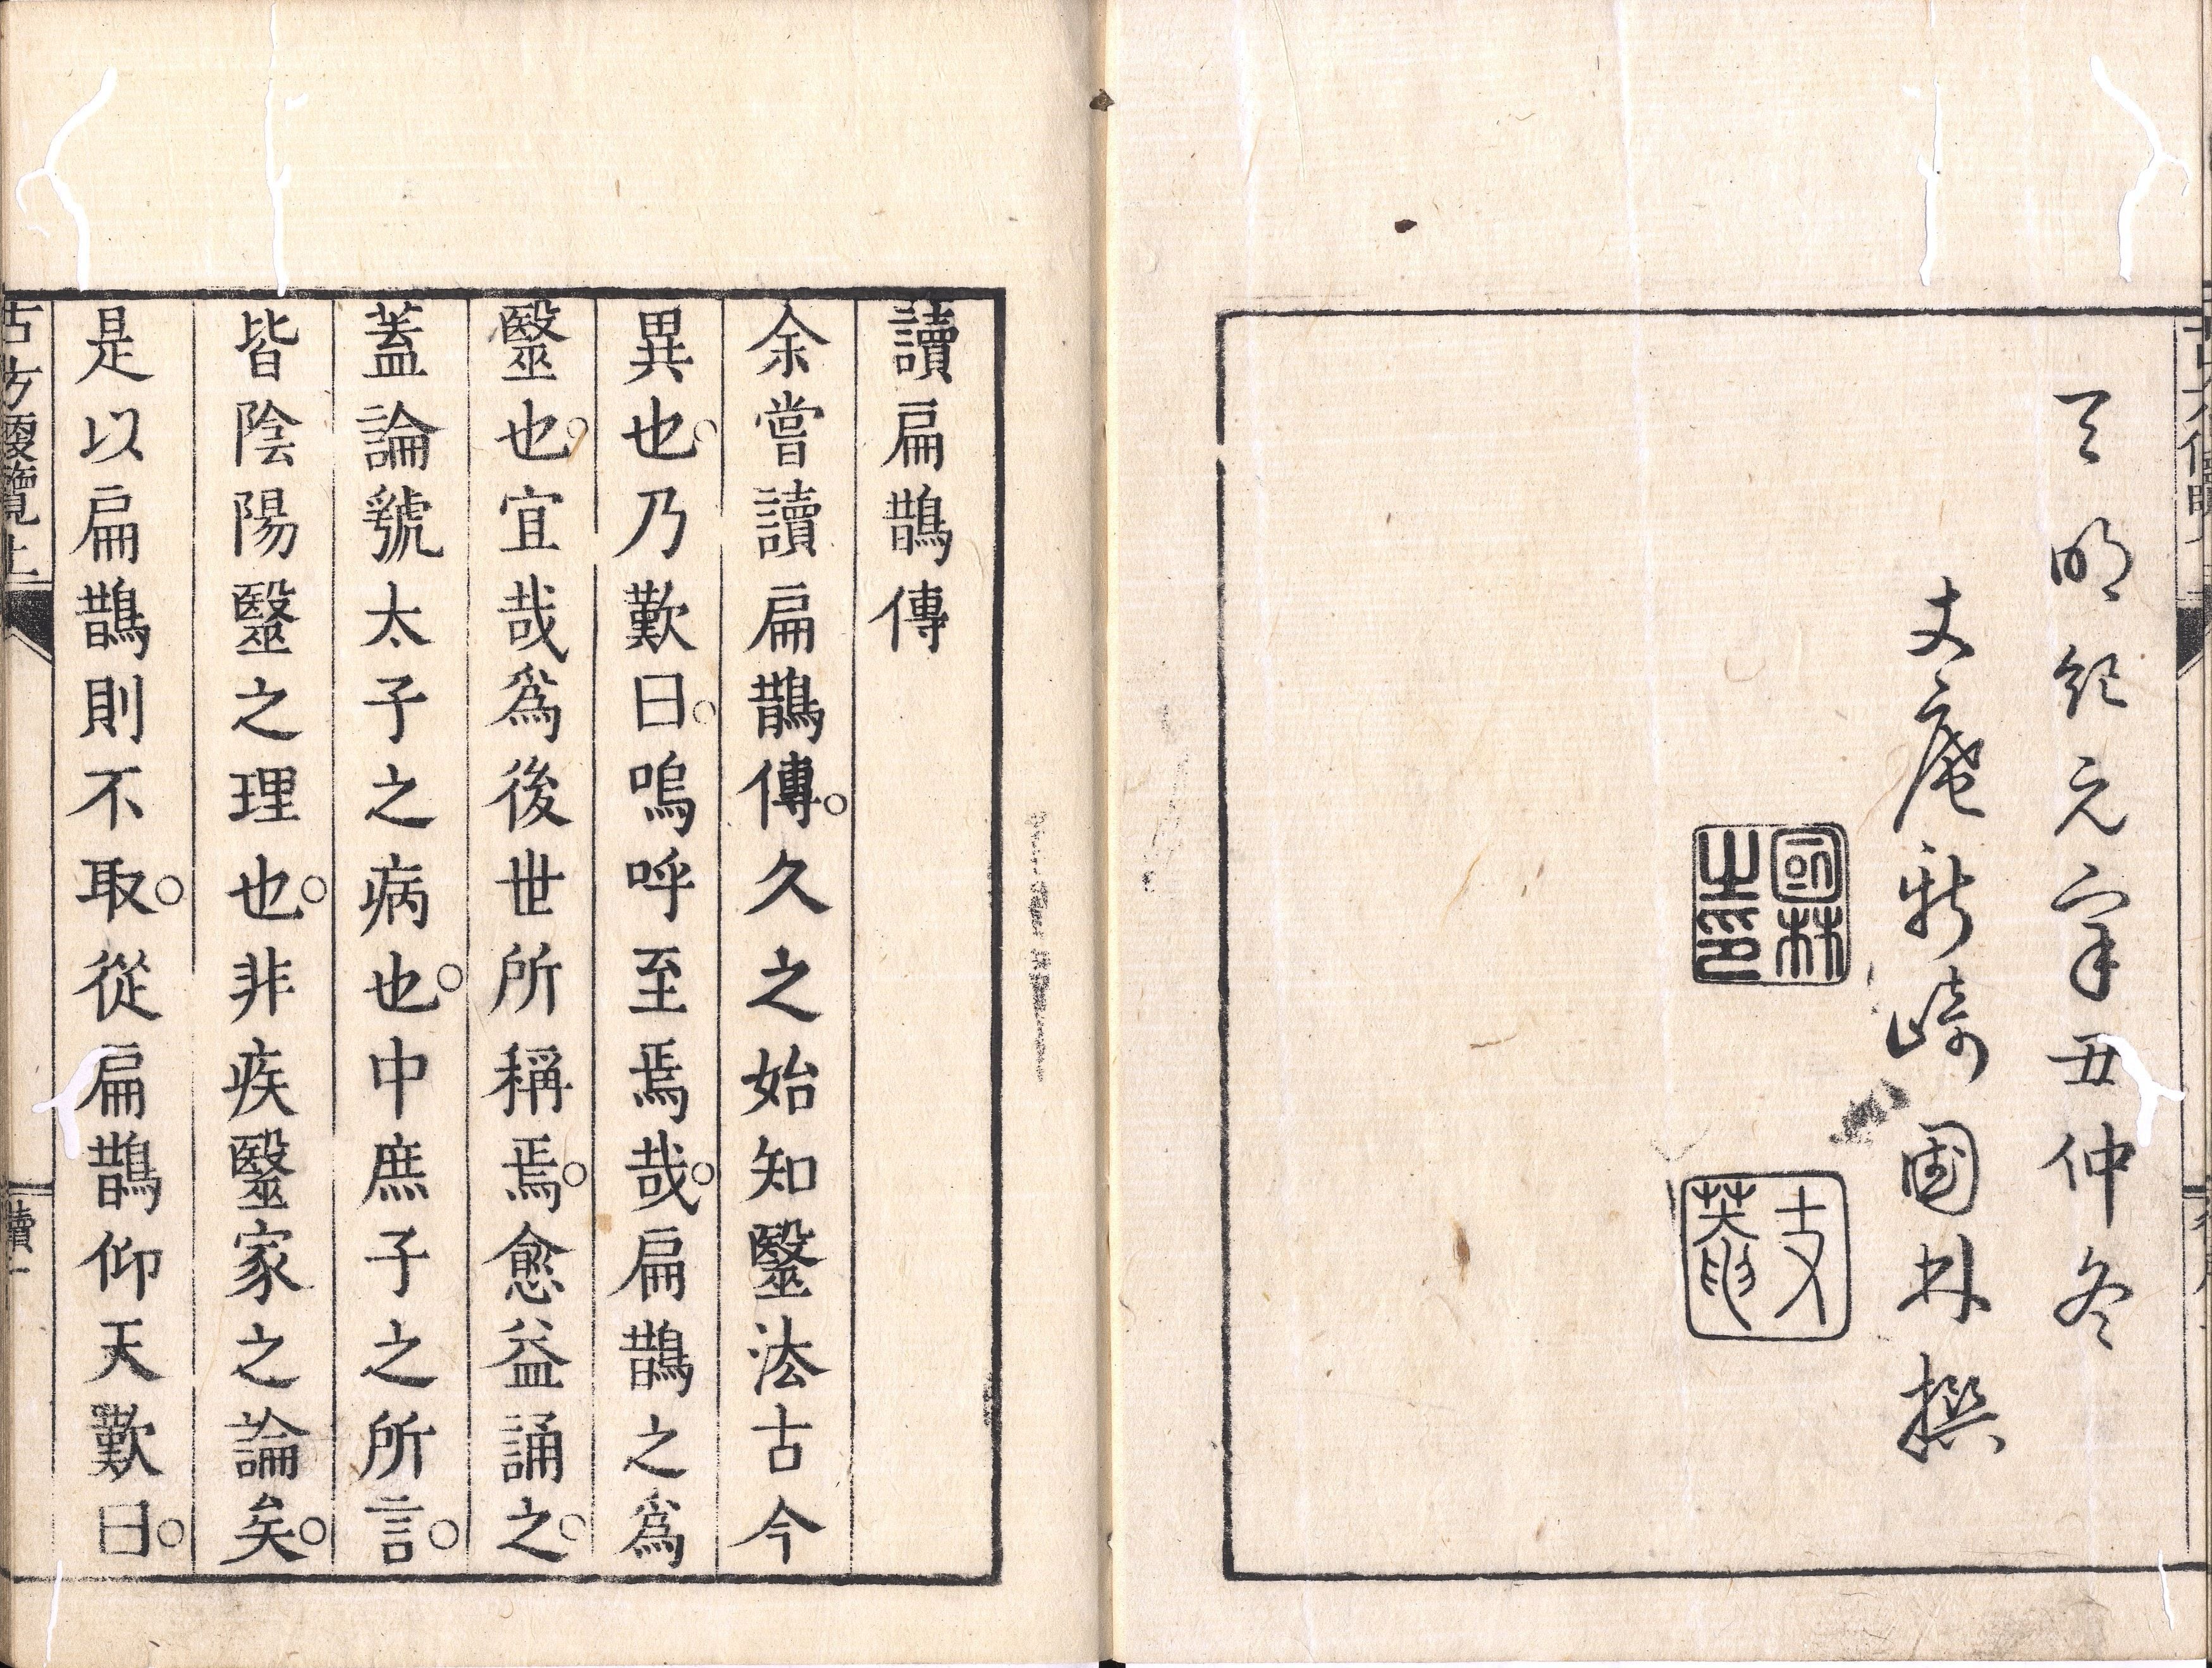 天明紀元辛丑仲冬
丈庵新崎國林撰
國林之印
讀扁鵲傳
余嘗讀扁鵲傳。久之始知毉法古今
異也。乃歎曰。嗚呼至焉哉。扁鵲之爲
毉也。宜哉爲後世所稱焉。愈益誦之。
蓋論號太子之病也。中庶子之所言。
皆陰陽毉之理也。非疾毉家之論矣。
是以扁鵲則不取。從扁鵲仰天歎曰。
讀一